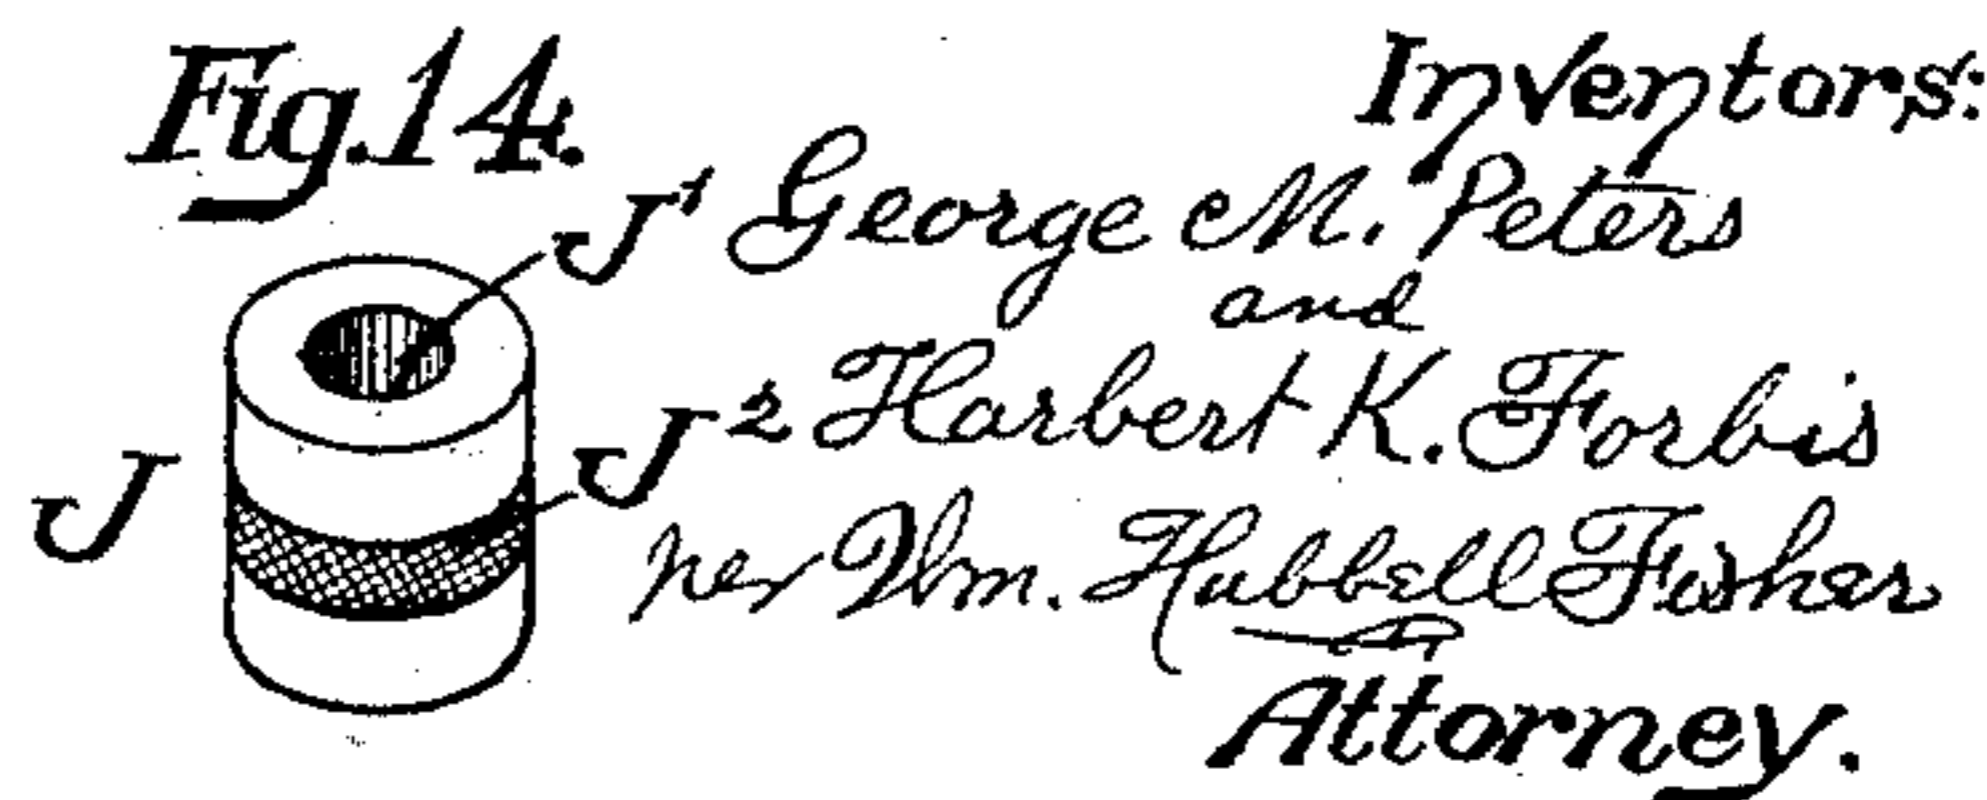 Fig. 14.
Inventors:
J¹
George M. Peters
and
J²
Harbert K. Forbis
J
per Wm. Hubbell Fisher
Attorney.